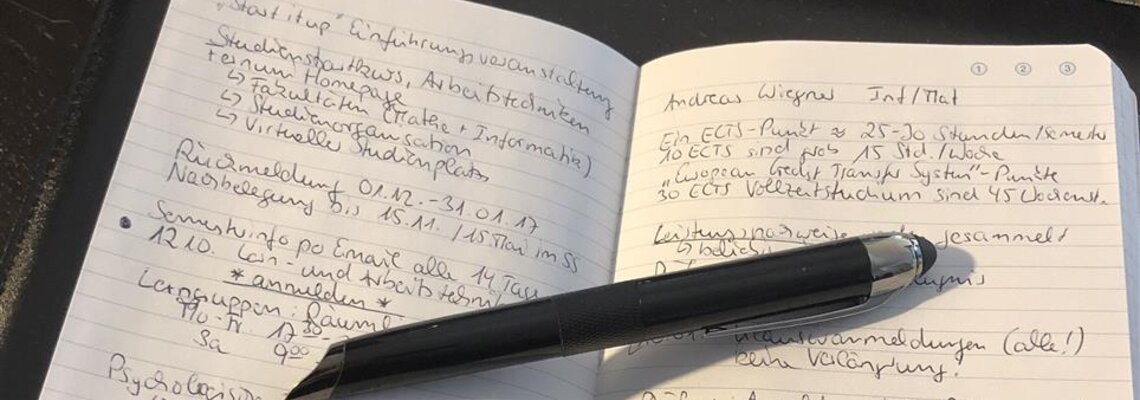 "Start it up" Einführungsveranstaltung
Studienstartkurs, Arbeitstechniken
Fernuni Homepage
↳ Fakultäten (Mathe + Informatik)
↳ Studienorganisation
↳ Virtueller Studienplatz
Rückmeldung 01.12.-31.01.17
Nachbelegung bis 15.11. /15. Mai im SS
Semesterinfo per Email alle 14 Tage
12.10. Lern- und
* anmelden *
Lerngruppen:
Mo-Fr 17³⁰-
Sa 9⁰⁰
① ② ③
Andreas Wiegner Inf/Mat
Ein ECTS-Punkt ≈ 25-30 Stunden/Semester
10 ECTS sind grob 15 Std./Woche
"European Credit Transfer System"-Punkte
30 ECTS Vollzeitstudium sind 45 Wochenst.
Leistungsnachweise gesammelt
(alle!)
keine Verlängerung!